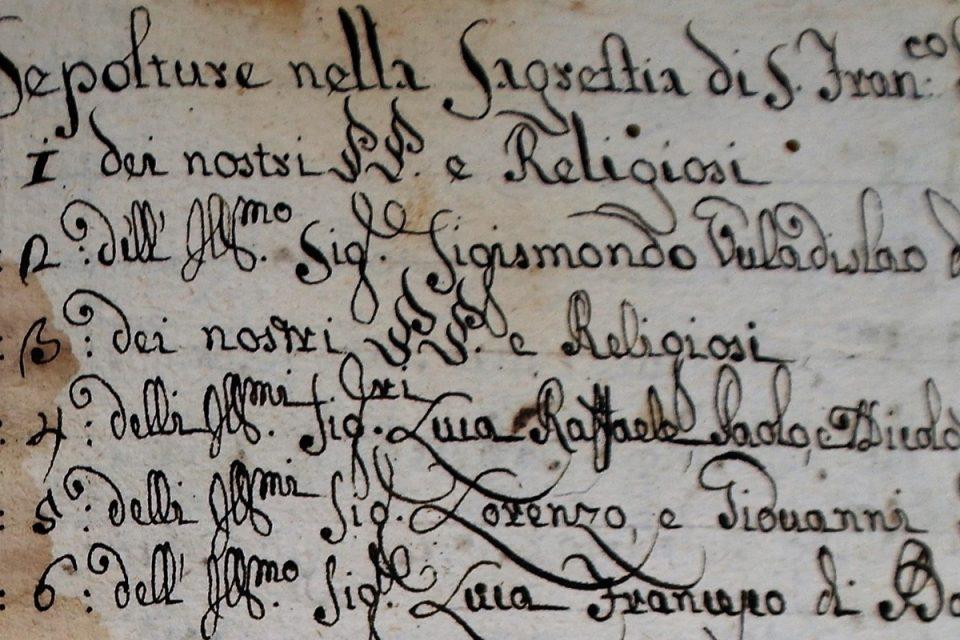 Sepolture nella Sagrestia di S. Fran:co
1. dei nostri PP. e Religiosi
: 2.º dell' Ill.mo Sig.le Sigismondo Vuladislao d
: 3.º dei nostri PP. e Religiosi
: 4.º delli Ill.mi Sig.ri Luca Raffaele Paolo, e Nicolò
: 5.º delli Ill.mi Sig. Lorenzo, e Giovanni
: 6.º dell' Ill.mo Sig.le Luca Francesco di Bo